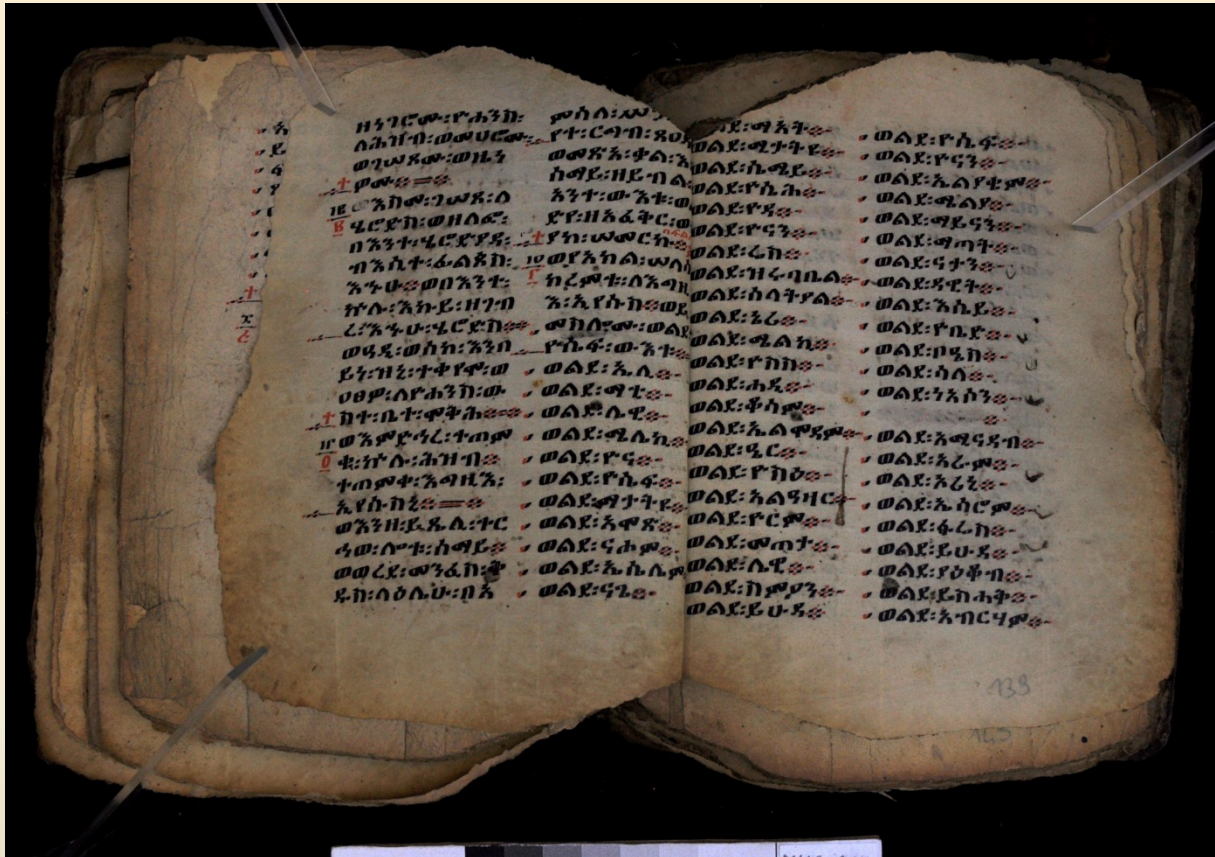 ዘነገሮሙ፡ዮሐንስ፡
ለሕዝብ፡ወመሀሮሙ፡
ወገሠጾሙ፡ወዜነ
ዎሙ።
ወእከመ፡ገሠጾ፡ለ
ሄሮድስ፡ወዘለፎ፡
በእንተ፡ሄሮድያዳ፡
ብእሲተ፡ፊልጶስ፡
እኁሁ።ወበእንተ፡
ኵሉ፡እኩይ፡ዘገብ
ረ፡እኁሁ፡ሄሮድስ።
ወዓዲ፡ወሰከ፡እንበ
ይነ፡ዝኒ፡ተቀየሞ፡ወ
ዐፀዎ፡ለዮሐንስ፡ው
ስተ፡ቤተ፡ሞቅሕ።
ወእምድኅረ፡ተጠም
ቁ፡ኵሉ፡ሕዝብ።
ተጠምቀ፡እግዚእ፡
ኢየሱስኒ።
ወእንዘ፡ይጼሊ፡ተር
ኅወ፡ሎቱ፡ሰማይ።
ወወረደ፡መንፈስ፡ቅ
ዱስ፡ላዕሌሁ፡በአ
ምሳለ፡
የተ፡ርግብ፡ጸዐ
ወመጽአ፡ቃል፡እ
ሰማይ፡ዘይብል
አንተ፡ውእቱ፡ወ
ድየ፡ዘአፈቅር፡ወ
ያከ፡ሠመርኩ።
ወየአክል፡ሠለ
ክረምቱ፡ለእግዚ
እ፡ኢየሱስ።ወይ
መስሎሙ፡ወልደ
ዮሴፍ፡ውእቱ።
ወልደ፡ኤሊ።
ወልደ፡ማቲ።
ወልደ፡ሌዊ።
ወልደ፡ሜሊኪ።
ወልደ፡ዮና።
ወልደ፡ዮሴፍ።
ወልደ፡ማታትዩ።
ወልደ፡አሞጽ።
ወልደ፡ናሖም።
ወልደ፡ኤሴሊም
ወልደ፡ናጌ።
ወልደ፡ማአት።
ወልደ፡ሜታትዩ።
ወልደ፡ሴሜይ።
ወልደ፡ዮሴሕ።
ወልደ፡ዮዳ።
ወልደ፡ዮናን።
ወልደ፡ሬስ።
ወልደ፡ዝሩባቤል።
ወልደ፡ሰላትያል።
ወልደ፡ኔሪ።
ወልደ፡ሜልኪ።
ወልደ፡ዮሰስ።
ወልደ፡ሐዲ።
ወልደ፡ቆሳም።
ወልደ፡ኤልሞዳም።
ወልደ፡ዔር።
ወልደ፡ዮስዕ።
ወልደ፡አልዓዛር።
ወልደ፡ዮርም።
ወልደ፡መጠታ።
ወልደ፡ሌዊ።
ወልደ፡ስምዖን።
ወልደ፡ይሁዳ።
ወልደ፡ዮሴፍ።
ወልደ፡ዮናን።
ወልደ፡ኤልያቄም።
ወልደ፡ሜልያ።
ወልደ፡ማይናን።
ወልደ፡ማጣት።
ወልደ፡ናታን።
ወልደ፡ዳዊት።
ወልደ፡እሴይ።
ወልደ፡ዮቤድ።
ወልደ፡ቦዔስ።
ወልደ፡ሳላ።
ወልደ፡ነአሶን።
ወልደ፡አሚናዳብ።
ወልደ፡አራም።
ወልደ፡አሪኒ።
ወልደ፡ኤስሮም።
ወልደ፡ፋሬስ።
ወልደ፡ይሁዳ።
ወልደ፡ያዕቆብ።
ወልደ፡ይስሐቅ።
ወልደ፡አብርሃም።
139